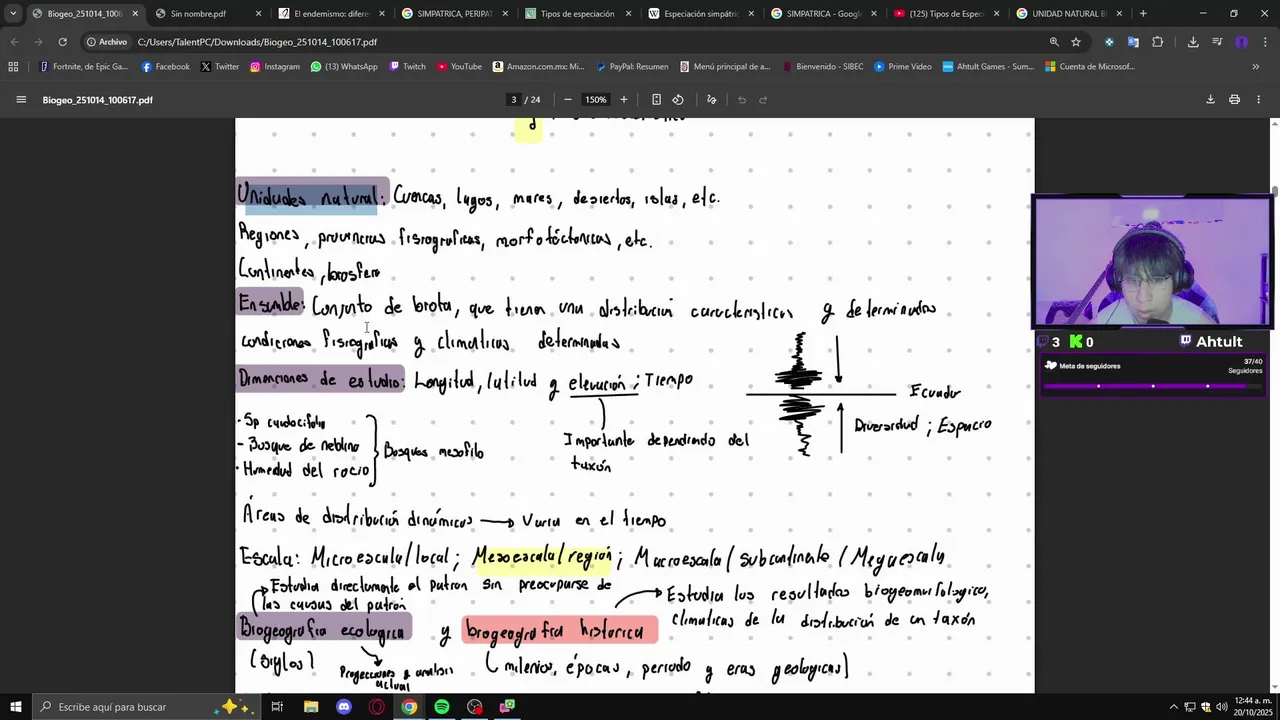 Biogeo_251014_100
Sin nombre.pdf
El endemismo: difere
SIMPATRICA, PERIPAT
Tipos de especiación
Especiación simpátric
SIMPATRICA - Google
(125) Tipos de Espec
UNIDAD NATURAL B
Archivo C:/Users/TalentPC/Downloads/Biogeo_251014_100617.pdf
Fortnite, de Epic Ga... Facebook Twitter Instagram (13) WhatsApp Twitch YouTube Amazon.com.mx: Mi... PayPal: Resumen Menú principal de a... Bienvenido - SIBEC Prime Video Ahtult Games - Sum... Cuenta de Microsof...
Biogeo_251014_100617.pdf 3 / 24 150%
Unidades natural: Cuencas, lagos, mares, desiertos, islas, etc.
Regiones, provincias fisiograficas, morfotéctonicas, etc.
Continentes, biosfera
Ensamble: Conjunto de biota, que tienen una distribución caracteristicas y determinadas
condiciones fisiograficas y climaticas determinadas
Dimenciones de estudio: Longitud, latitud y elevación; Tiempo
Ecuador
Diversidad ; Espacio
Importante dependiendo del
taxón
· Sp caudocifolia
- Bosque de neblina
· Humedad del rocio
Bosques mesofilo
Áreas de distribución dinámicas → Varia en el tiempo
Escala: Microescala/local; Mesoescala/región; Macroescala/subcontinente/Megaescala
Estudia directamente el patron sin preocuparse de
las causas del patrón
Estudia los resultados biogeomorfologico,
climaticas de la distribución de un taxón
Biogeografia ecologica y biogeografia historica
(Siglos)
Projecciones y analisis
actual
(milenios, épocas, periodo y eras geologicas)
3 K 0 Ahtult
Meta de seguidores
37/40
Seguidores
Escribe aquí para buscar
12:44 a. m.
20/10/2025